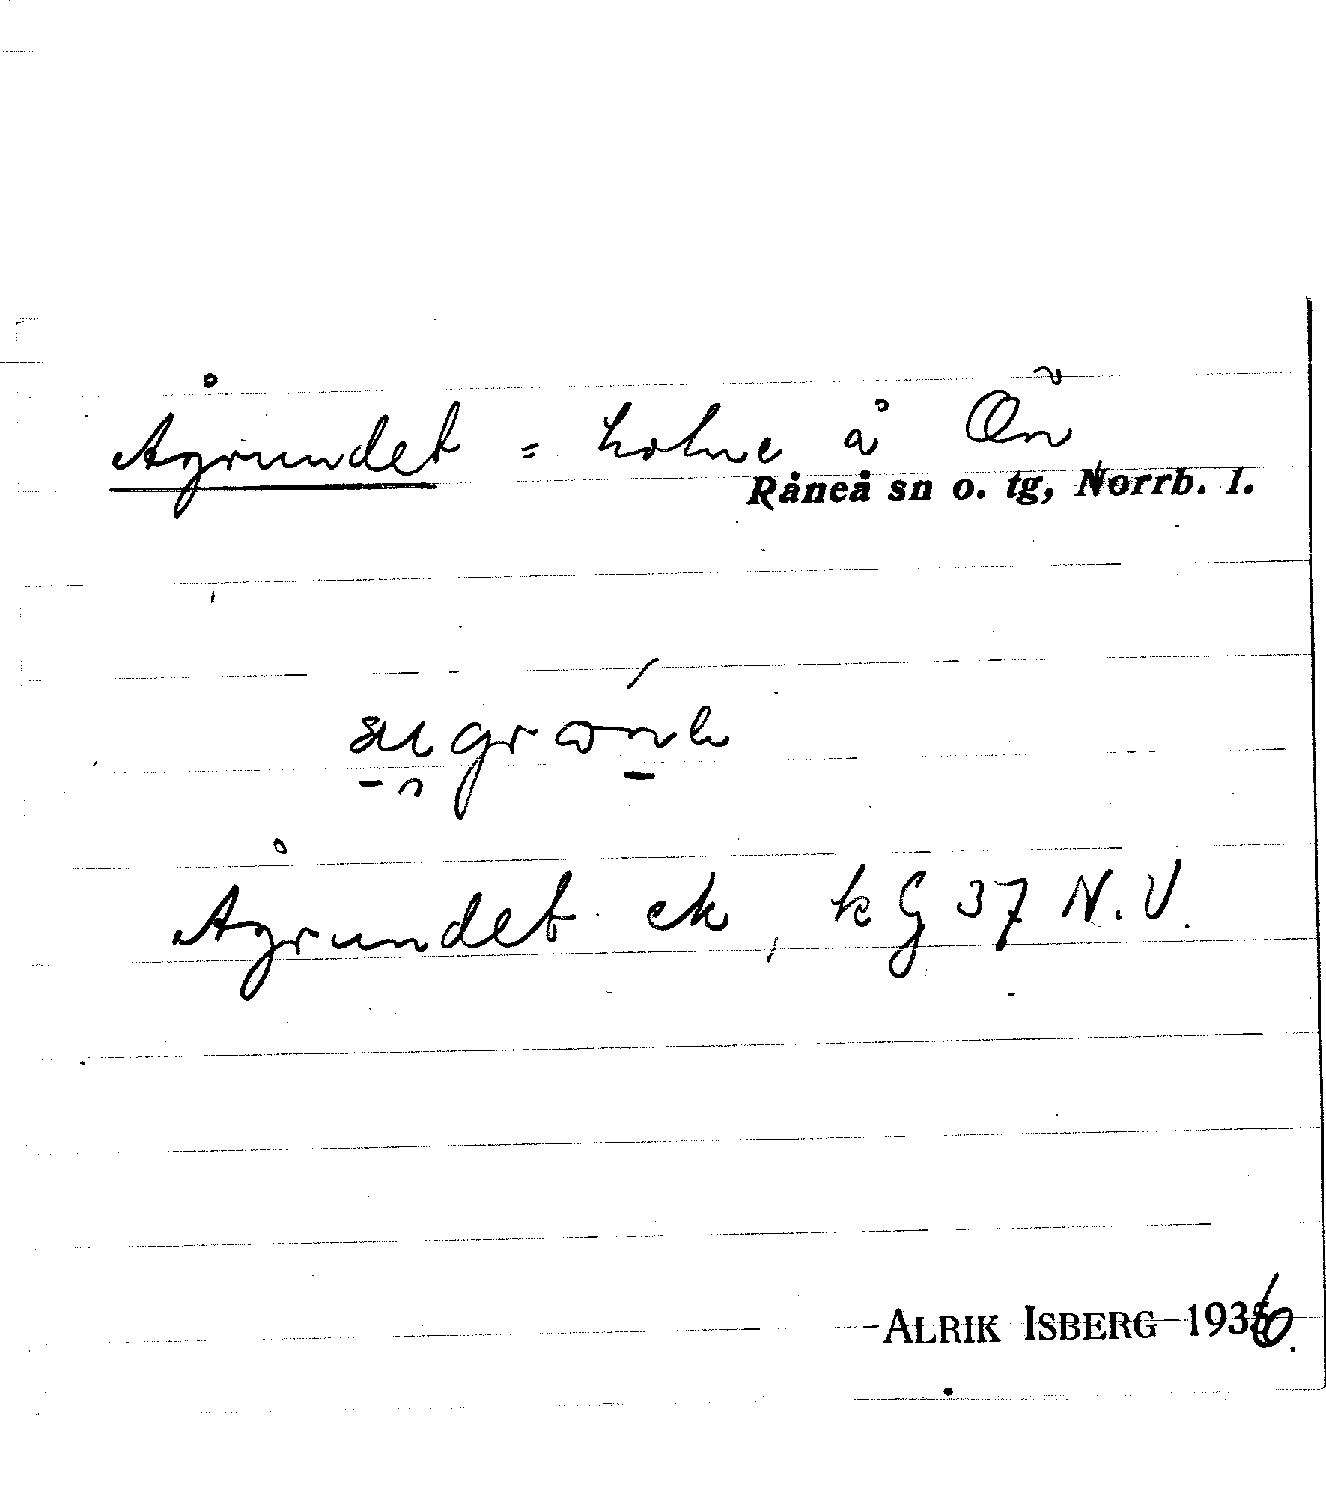 Ågrundet = holme å Ön
Råneå sn o. tg, Norrb. l.
Ågrundet ek, kG 37 N.V.
ALRIK ISBERG 1936.